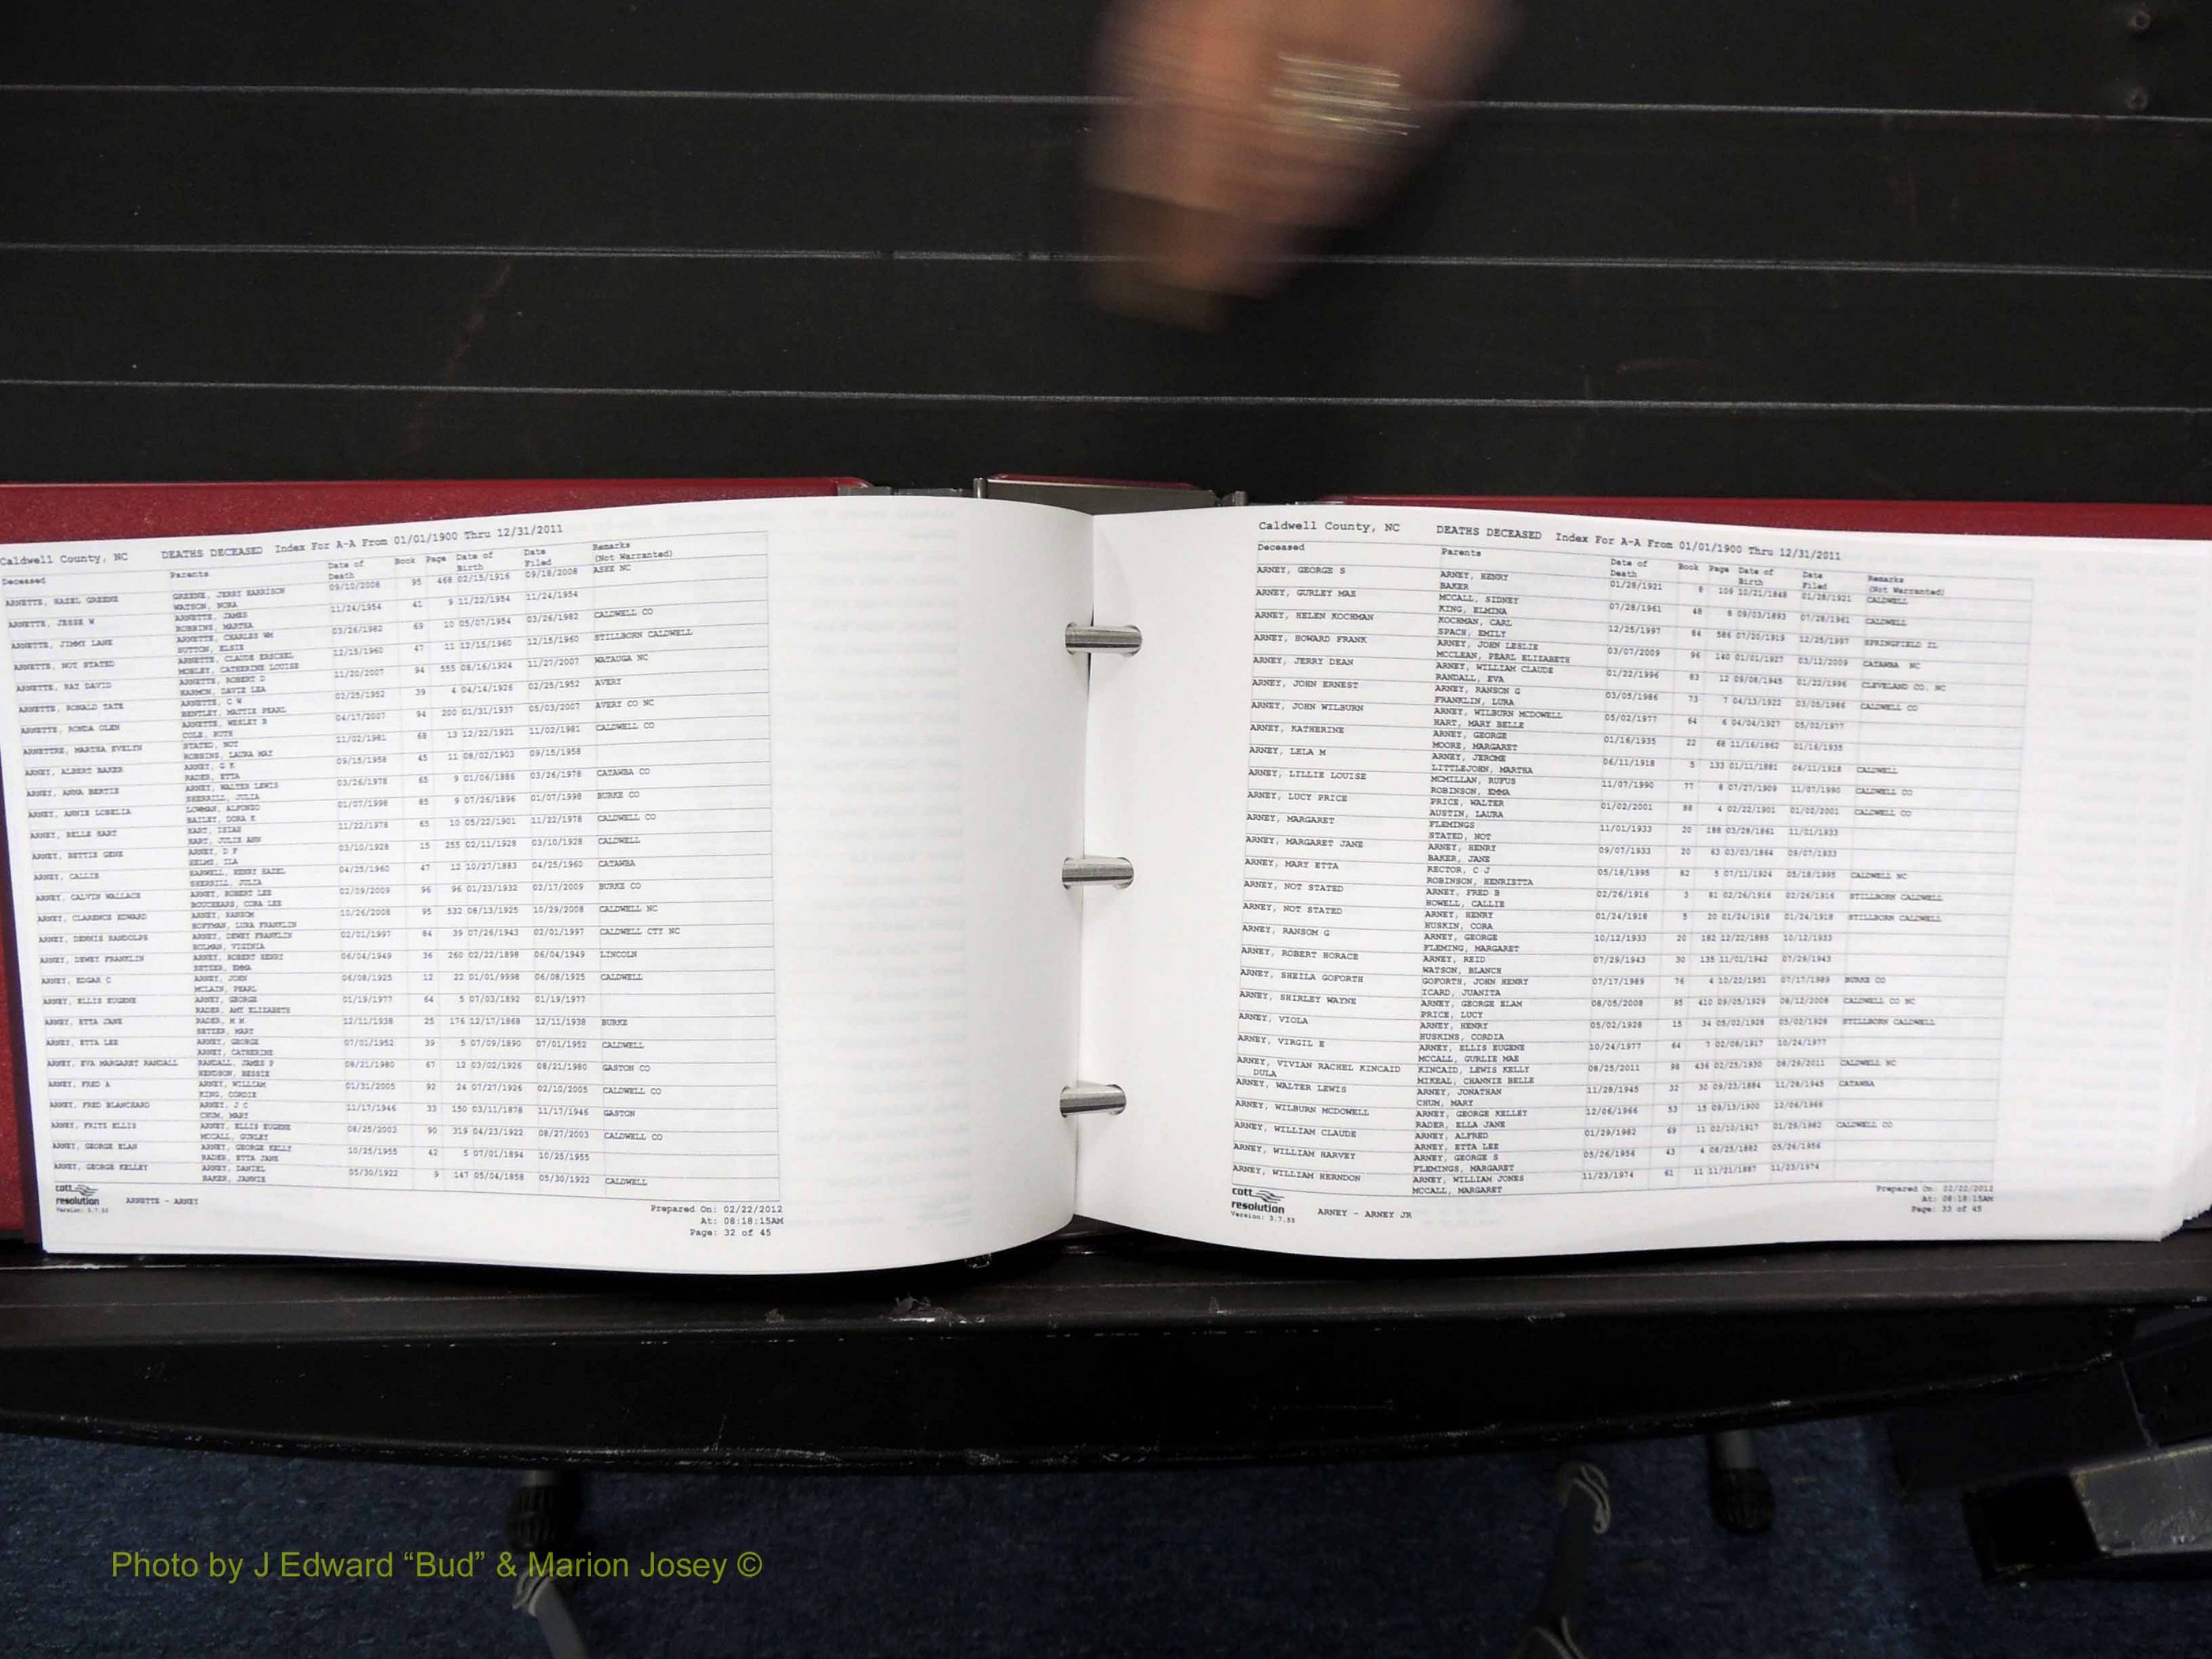 Caldwell County, NC DEATHS DECEASED Index For A-A From 01/01/1900 Thru 12/31/2011
Deceased Parents Date of Death Book Page Date of Birth Date Filed Remarks (Not Warranted)
ARNETTE, HAZEL GREENE GREENE, JERRY HARRISON 09/10/2008 95 468 02/15/1916 09/18/2008 ASHE NC
WATSON, NORA
ARNETTE, JESSE W ARNETTE, JAMES 11/24/1954 41 9 11/22/1954 11/24/1954
ROBBINS, MARTHA
ARNETTE, JIMMY LANE ARNETTE, CHARLES WM 03/26/1982 69 10 05/07/1954 03/26/1982 CALDWELL CO
SUTTON, ELSIE
ARNETTE, NOT STATED ARNETTE, CLAUDE ERSCHEL 12/15/1960 47 11 12/15/1960 12/15/1960 STILLBORN CALDWELL
MOSLEY, CATHERINE LOUISE
ARNETTE, RAY DAVID ARNETTE, ROBERT D 11/20/2007 94 555 08/16/1924 11/27/2007 WATAUGA NC
HARMON, DAVIE LEA
ARNETTE, RONALD TATE ARNETTE, C W 02/25/1952 39 4 04/14/1926 02/25/1952 AVERY
BENTLEY, MATTIE PEARL
ARNETTE, RONDA GLEN ARNETTE, WESLEY B 04/17/2007 94 200 01/31/1937 05/03/2007 AVERY CO NC
COLE, RUTH
ARNETTRE, MARTHA EVELYN STATED, NOT 11/02/1981 68 13 12/22/1921 11/02/1981 CALDWELL CO
ROBBINS, LAURA MAY
ARNEY, ALBERT BAKER ARNEY, G K 09/15/1958 45 11 08/02/1903 09/15/1958
RADER, ETTA
ARNEY, ANNA BERTIE ARNEY, WALTER LEWIS 03/26/1978 65 9 01/06/1886 03/26/1978 CATAWBA CO
SHERRILL, JULIA
ARNEY, ANNIE LOBELIA LOWMAN, ALFONZO 01/07/1998 85 9 07/26/1896 01/07/1998 BURKE CO
BAILEY, DORA K
ARNEY, BELLE HART HART, ISIAH 11/22/1978 65 10 05/22/1901 11/22/1978 CALDWELL CO
HART, JULIE ANN
ARNEY, BETTIE GENE ARNEY, D F 03/10/1928 15 255 02/11/1928 03/10/1928 CALDWELL
HELMS, ILA
ARNEY, CALLIE HARWELL, HENRY HAZEL 04/25/1960 47 12 10/27/1883 04/25/1960 CATAWBA
SHERRILL, JULIA
ARNEY, CALVIN WALLACE ARNEY, ROBERT LEE 02/09/2009 96 96 01/23/1932 02/17/2009 BURKE CO
BOUCHEARS, CORA LEE
ARNEY, CLARENCE EDWARD ARNEY, RANSOM 10/26/2008 95 532 08/13/1925 10/29/2008 CALDWELL NC
HOFFMAN, LURA FRANKLIN
ARNEY, DENNIS RANDOLPH ARNEY, DEWEY FRANKLIN 02/01/1997 84 39 07/26/1943 02/01/1997 CALDWELL CTY NC
HOLMAN, VIRGINIA
ARNEY, DEWEY FRANKLIN ARNEY, ROBERT HENRY 06/04/1949 36 260 02/22/1898 06/04/1949 LINCOLN
SETZER, EMMA
ARNEY, EDGAR C ARNEY, JOHN 06/08/1925 12 22 01/01/9998 06/08/1925 CALDWELL
MCLAIN, PEARL
ARNEY, ELLIS EUGENE ARNEY, GEORGE 01/19/1977 64 5 07/03/1892 01/19/1977
RADER, AMY ELIZABETH
ARNEY, ETTA JANE RADER, M M 12/11/1938 25 176 12/17/1868 12/11/1938 BURKE
SETZER, MARY
ARNEY, ETTA LEE ARNEY, GEORGE 07/01/1952 39 5 07/09/1890 07/01/1952 CALDWELL
ARNEY, CATHERINE
ARNEY, EVA MARGARET RANDALL RANDALL, JAMES P 08/21/1980 67 12 03/02/1926 08/21/1980 GASTON CO
HENDSON, BESSIE
ARNEY, FRED A ARNEY, WILLIAM 01/31/2005 92 24 07/27/1926 02/10/2005 CALDWELL CO
KING, CORDIE
ARNEY, FRED BLANCHARD ARNEY, J C 11/17/1946 33 150 03/11/1878 11/17/1946 GASTON
CHUM, MARY
ARNEY, FRITZ ELLIS ARNEY, ELLIS EUGENE 08/25/2003 90 319 04/23/1922 08/27/2003 CALDWELL CO
MCCALL, GURLEY
ARNEY, GEORGE ELAN ARNEY, GEORGE KELLY 10/25/1955 42 5 07/01/1894 10/25/1955
RADER, ETTA JANE
ARNEY, GEORGE KELLEY ARNEY, DANIEL 05/30/1922 9 147 05/04/1858 05/30/1922 CALDWELL
BAKER, JANNIE
cott
resolution ARNETTE - ARNEY
Prepared On: 02/22/2012
At: 08:18:15AM
Page: 32 of 45
Caldwell County, NC DEATHS DECEASED Index For A-A From 01/01/1900 Thru 12/31/2011
Deceased Parents Date of Death Book Page Date of Birth Date Filed Remarks (Not Warranted)
ARNEY, GEORGE S ARNEY, HENRY 01/28/1921 8 109 10/21/1848 01/28/1921 CALDWELL
BAKER
ARNEY, GURLEY MAE MCCALL, SIDNEY 07/28/1961 48 8 09/03/1893 07/28/1961 CALDWELL
KING, ELMINA
ARNEY, HELEN KOCHMAN KOCHMAN, CARL 12/25/1997 84 586 07/20/1919 12/25/1997 SPRINGFIELD IL
SPACH, EMILY
ARNEY, HOWARD FRANK ARNEY, JOHN LESLIE 03/07/2009 96 140 01/01/1927 03/12/2009 CATAWBA NC
MCCLEAN, PEARL ELIZABETH
ARNEY, JERRY DEAN ARNEY, WILLIAM CLAUDE 01/22/1996 83 12 09/08/1945 01/22/1996 CLEVELAND CO. NC
RANDALL, EVA
ARNEY, JOHN ERNEST ARNEY, RANSON G 03/05/1986 73 7 04/13/1922 03/05/1986 CALDWELL CO
FRANKLIN, LURA
ARNEY, JOHN WILBURN ARNEY, WILBURN MCDOWELL 05/02/1977 64 6 04/04/1927 05/02/1977
HART, MARY BELLE
ARNEY, KATHERINE ARNEY, GEORGE 01/16/1935 22 68 11/16/1862 01/16/1935
MOORE, MARGARET
ARNEY, LELA M ARNEY, JEROME 06/11/1918 5 133 01/11/1881 06/11/1918 CALDWELL
LITTLEJOHN, MARTHA
ARNEY, LILLIE LOUISE MCMILLAN, RUFUS 11/07/1990 77 8 07/27/1909 11/07/1990 CALDWELL CO
ROBINSON, EMMA
ARNEY, LUCY PRICE PRICE, WALTER 01/02/2001 88 4 02/22/1901 01/02/2001 CALDWELL CO
AUSTIN, LAURA
ARNEY, MARGARET FLEMINGS 11/01/1933 20 188 03/28/1861 11/01/1933
STATED, NOT
ARNEY, MARGARET JANE ARNEY, HENRY 09/07/1933 20 63 03/03/1864 09/07/1933
BAKER, JANE
ARNEY, MARY ETTA RECTOR, C J 05/18/1995 82 5 07/11/1924 05/18/1995 CALDWELL NC
ROBINSON, HENRIETTA
ARNEY, NOT STATED ARNEY, FRED B 02/26/1916 3 81 02/26/1916 02/26/1916 STILLBORN CALDWELL
HOWELL, CALLIE
ARNEY, NOT STATED ARNEY, HENRY 01/24/1918 5 20 01/24/1918 01/24/1918 STILLBORN CALDWELL
HUSKIN, CORA
ARNEY, RANSOM G ARNEY, GEORGE 10/12/1933 20 182 12/22/1885 10/12/1933
FLEMING, MARGARET
ARNEY, ROBERT HORACE ARNEY, REID 07/29/1943 30 135 11/01/1942 07/29/1943
WATSON, BLANCH
ARNEY, SHEILA GOFORTH GOFORTH, JOHN HENRY 07/17/1989 76 4 10/22/1951 07/17/1989 BURKE CO
ICARD, JUANITA
ARNEY, SHIRLEY WAYNE ARNEY, GEORGE ELAM 08/05/2008 95 410 09/05/1929 08/12/2008 CALDWELL CO NC
PRICE, LUCY
ARNEY, VIOLA ARNEY, HENRY 05/02/1928 15 34 05/02/1928 05/02/1928 STILLBORN CALDWELL
HUSKINS, CORDIA
ARNEY, VIRGIL E ARNEY, ELLIS EUGENE 10/24/1977 64 7 02/08/1917 10/24/1977
MCCALL, GURLIE MAE
ARNEY, VIVIAN RACHEL KINCAID KINCAID, LEWIS KELLY 08/25/2011 98 436 02/25/1930 08/29/2011 CALDWELL NC
DULA MIKEAL, CHANNIE BELLE
ARNEY, WALTER LEWIS ARNEY, JONATHAN 11/28/1945 32 30 09/23/1884 11/28/1945 CATAWBA
CHUM, MARY
ARNEY, WILBURN MCDOWELL ARNEY, GEORGE KELLEY 12/06/1966 53 15 09/13/1900 12/06/1966
RADER, ELLA JANE
ARNEY, WILLIAM CLAUDE ARNEY, ALFRED 01/29/1982 69 11 02/10/1917 01/29/1982 CALDWELL CO
ARNEY, ETTA LEE
ARNEY, WILLIAM HARVEY ARNEY, GEORGE S 05/26/1956 43 4 08/25/1882 05/26/1956
FLEMINGS, MARGARET
ARNEY, WILLIAM HERNDON ARNEY, WILLIAM JONES 11/23/1974 61 11 11/21/1887 11/23/1974
MCCALL, MARGARET
cott
resolution ARNEY - ARNEY JR
Prepared On: 02/22/2012
At: 08:18:15AM
Page: 33 of 45
Photo by J Edward “Bud” & Marion Josey ©